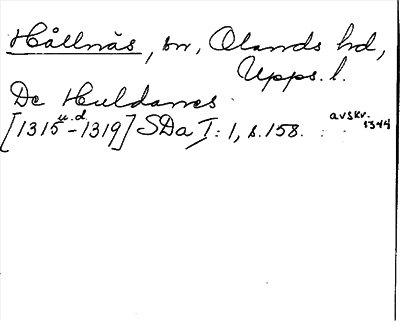 Hållnäs, sn, Olands hd,
Upps. l.
De Huldanes
[1315 u.d. -1319] SDa I: 1, s. 158. avskr. 1344